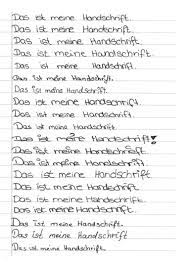 Das ist meine Handschrift.
Das ist meine Handschrift.
Das ist meine Handschrift.
Das ist meine Handschrift.
Das ist meine Handschrift.
Das ist meine Handschrift.
Das ist meine Handschrift.
Das ist meine Handschrift.
Das ist meine Handschrift.
Das ist meine Handschrift.
Das ist meine Handschrift.
Das ist meine Handschrift.
Das ist meine Handschrift.
Das ist meine Handschrift
Das ist meine Handschrift.
Das ist meine Handschrift.
Das ist meine Handschrift.
Das ist meine Handschrift.
Das ist meine Handschrift
Das ist meine Handschrift.